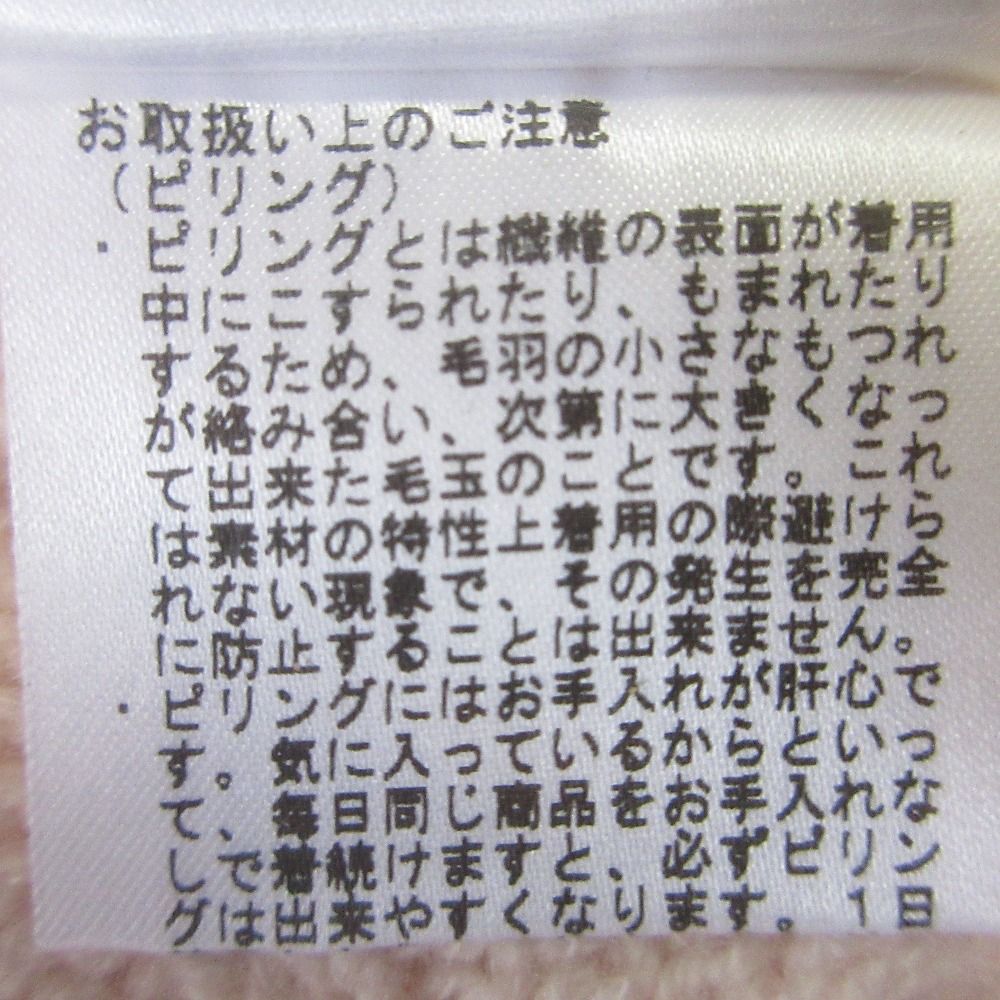 お取扱い上のご注意
(ピリング)
・ピリングとは繊維の表面が着用
中にこすられたり、もまれたり
するため、毛羽の小さなもつれ
が絡み合い、次第に大きくなっ
て出来た毛玉のことです。これ
は素材の特性上着用の際避けら
れない現象で、その発生を完全
に防止することは出来ません。
・ピリングにはお手入れが肝心で
す。気に入っているからといっ
て、毎日同じ商品をお手入れな
しで着続けますと、必ずピリン
グは出来やすくなります。1日